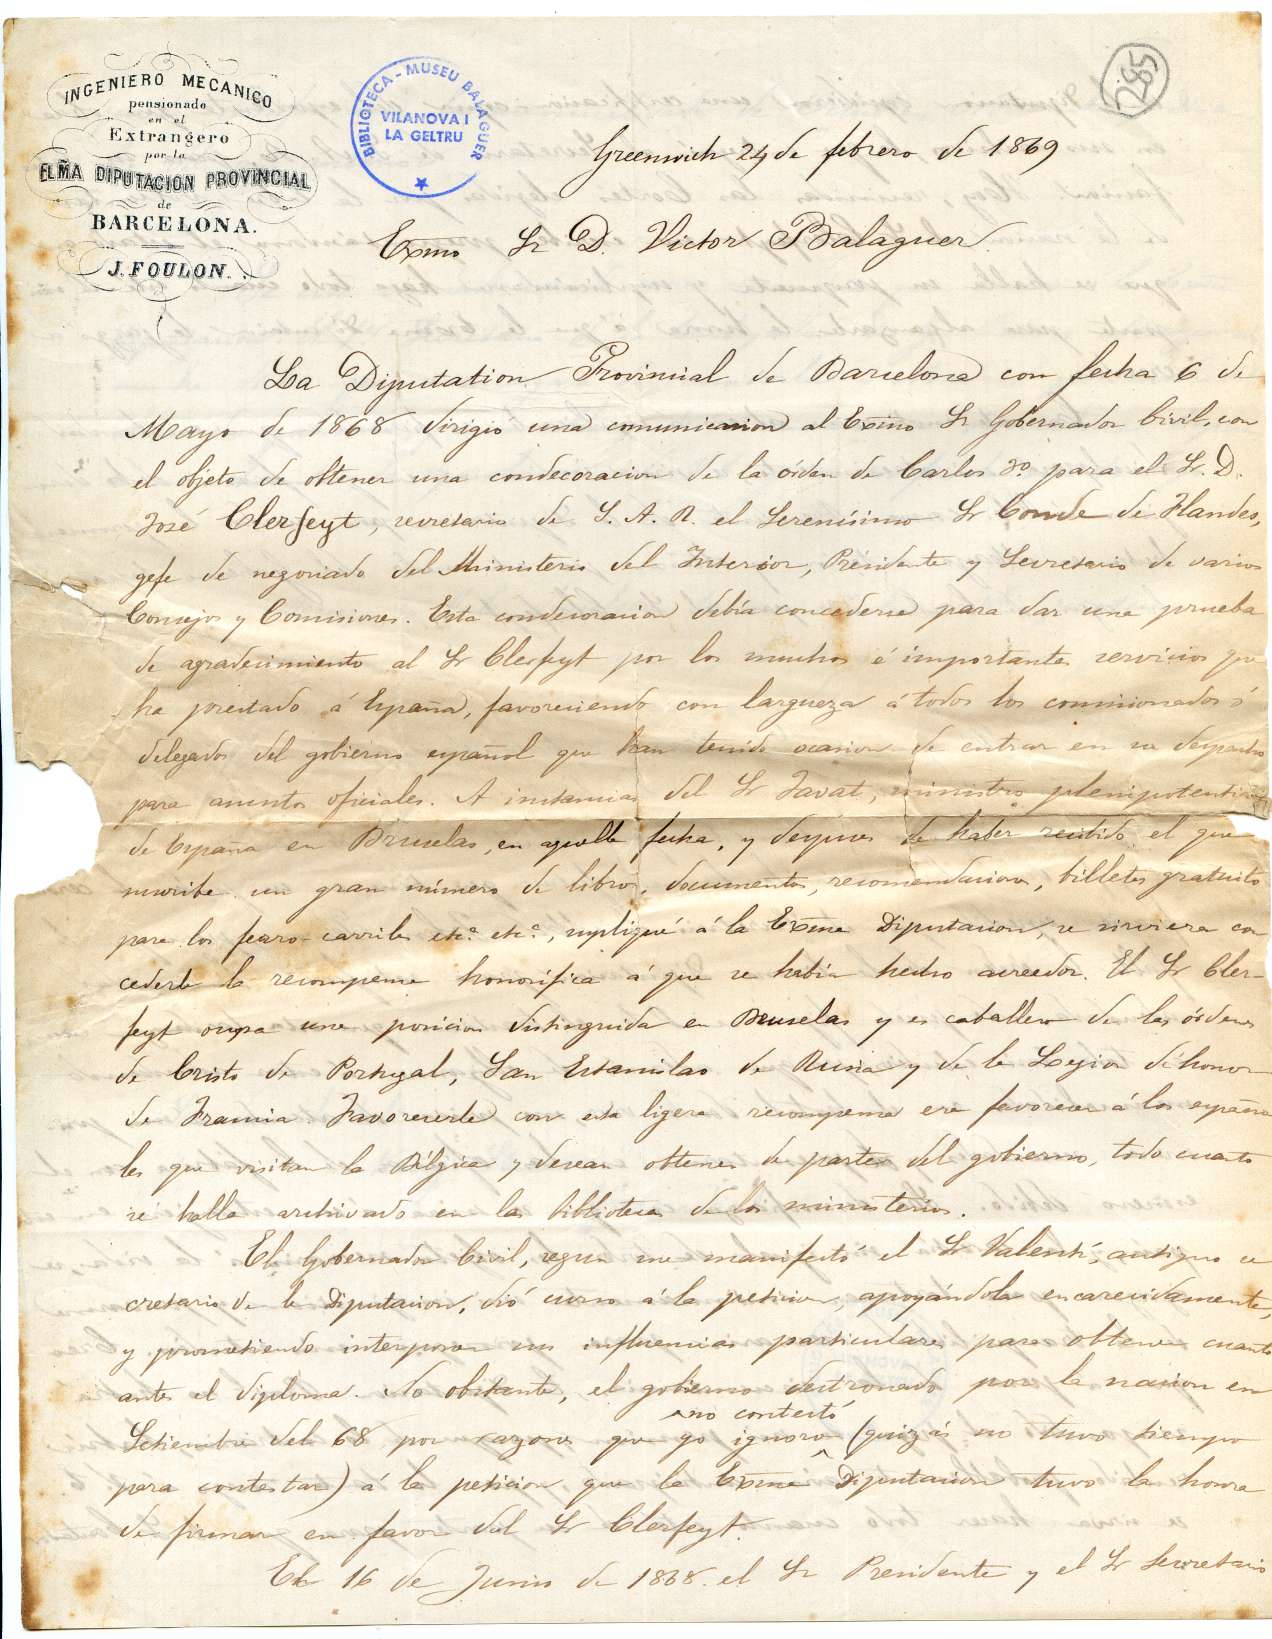 INGENIERO MECANICO
pensionado
en el
Extrangero
por la
EL͞MA DIPUTACION PROVINCIAL
de
BARCELONA.
J. FOULON.
BIBLIOTECA - MUSEU BALAGUER
VILANOVA I
LA GELTRU
285
Greenwich 24 de febrero de 1869
Exmo Sr D. Victor Balaguer.
La Diputation Provincial de Barcelona con fecha 6 de
Mayo de 1868 dirigió una comunicacion al Exmo Sr Gobernador Civil, con
el objeto de obtener una condecoracion de la órden de Carlos 3º para el Sr. D.
José Clerfeyt, secretario de S. A. R. el Serenísimo Sr Conde de Flandes,
gefe de negociado del Ministerio del Interior, Présidente y Secretario de varios
Consejos y Comisiones. Esta condecoracion debía concederse para dar una prueba
de agradecimiento al Sr Clerfeyt por los muchos é importantes servicios que
ha prestado á España, favoreciendo con largueza á todos los comisionados ó
delegados del gobierno español que han tenido ocasion de entrar en su despacho
para asuntos oficiales. A instancias del Sr Tavat, ministro plenipotentiario
de España en Bruselas, en aquella fecha, y despues de haber recibido el que
suscribe un gran número de libros, documentos, recomendaciones, billetes gratuito
para los ferro-carriles etc.ª etc.ª, supliqué á la Exma Diputacion, se sirviera con
cederle la recompensa honorífica á que se había hecho acreedor. El Sr Cler-
feyt ocupa una posicion distinguida en Bruselas y es caballero de las órdenes
de Cristo de Portugal, San Estanislao de Rusia y de la Legion d'honor
de Francia. Favorecerle con esta ligera recompensa era favorecer á los españo
les que visitan la Bélgica y desean obtener de parte del gobierno, todo cuanto
sé halla archivado en las bibliotecas de los ministerios.
El Gobernador Civil, segun me manifestó el Sr Valentí, antiguo se
cretario de la Diputacion, dió curso á la peticion, apoyándola encarecidamente,
y prometiendo interponer sus influencias particulares para obtener cuanto
antes el diploma. No obstante, el gobierno destronado por la nacion en
no contestó
Setiembre del 68 por razones que yo ignoro (quizás no tuvo tiempo
para contestar) á la peticion que la Exma Diputacion tuvo la honra
de firmar en favor del Sr Clerfeyt.
El 16 de Junio de 1868 el Sr Presidente y el Sr Secretario